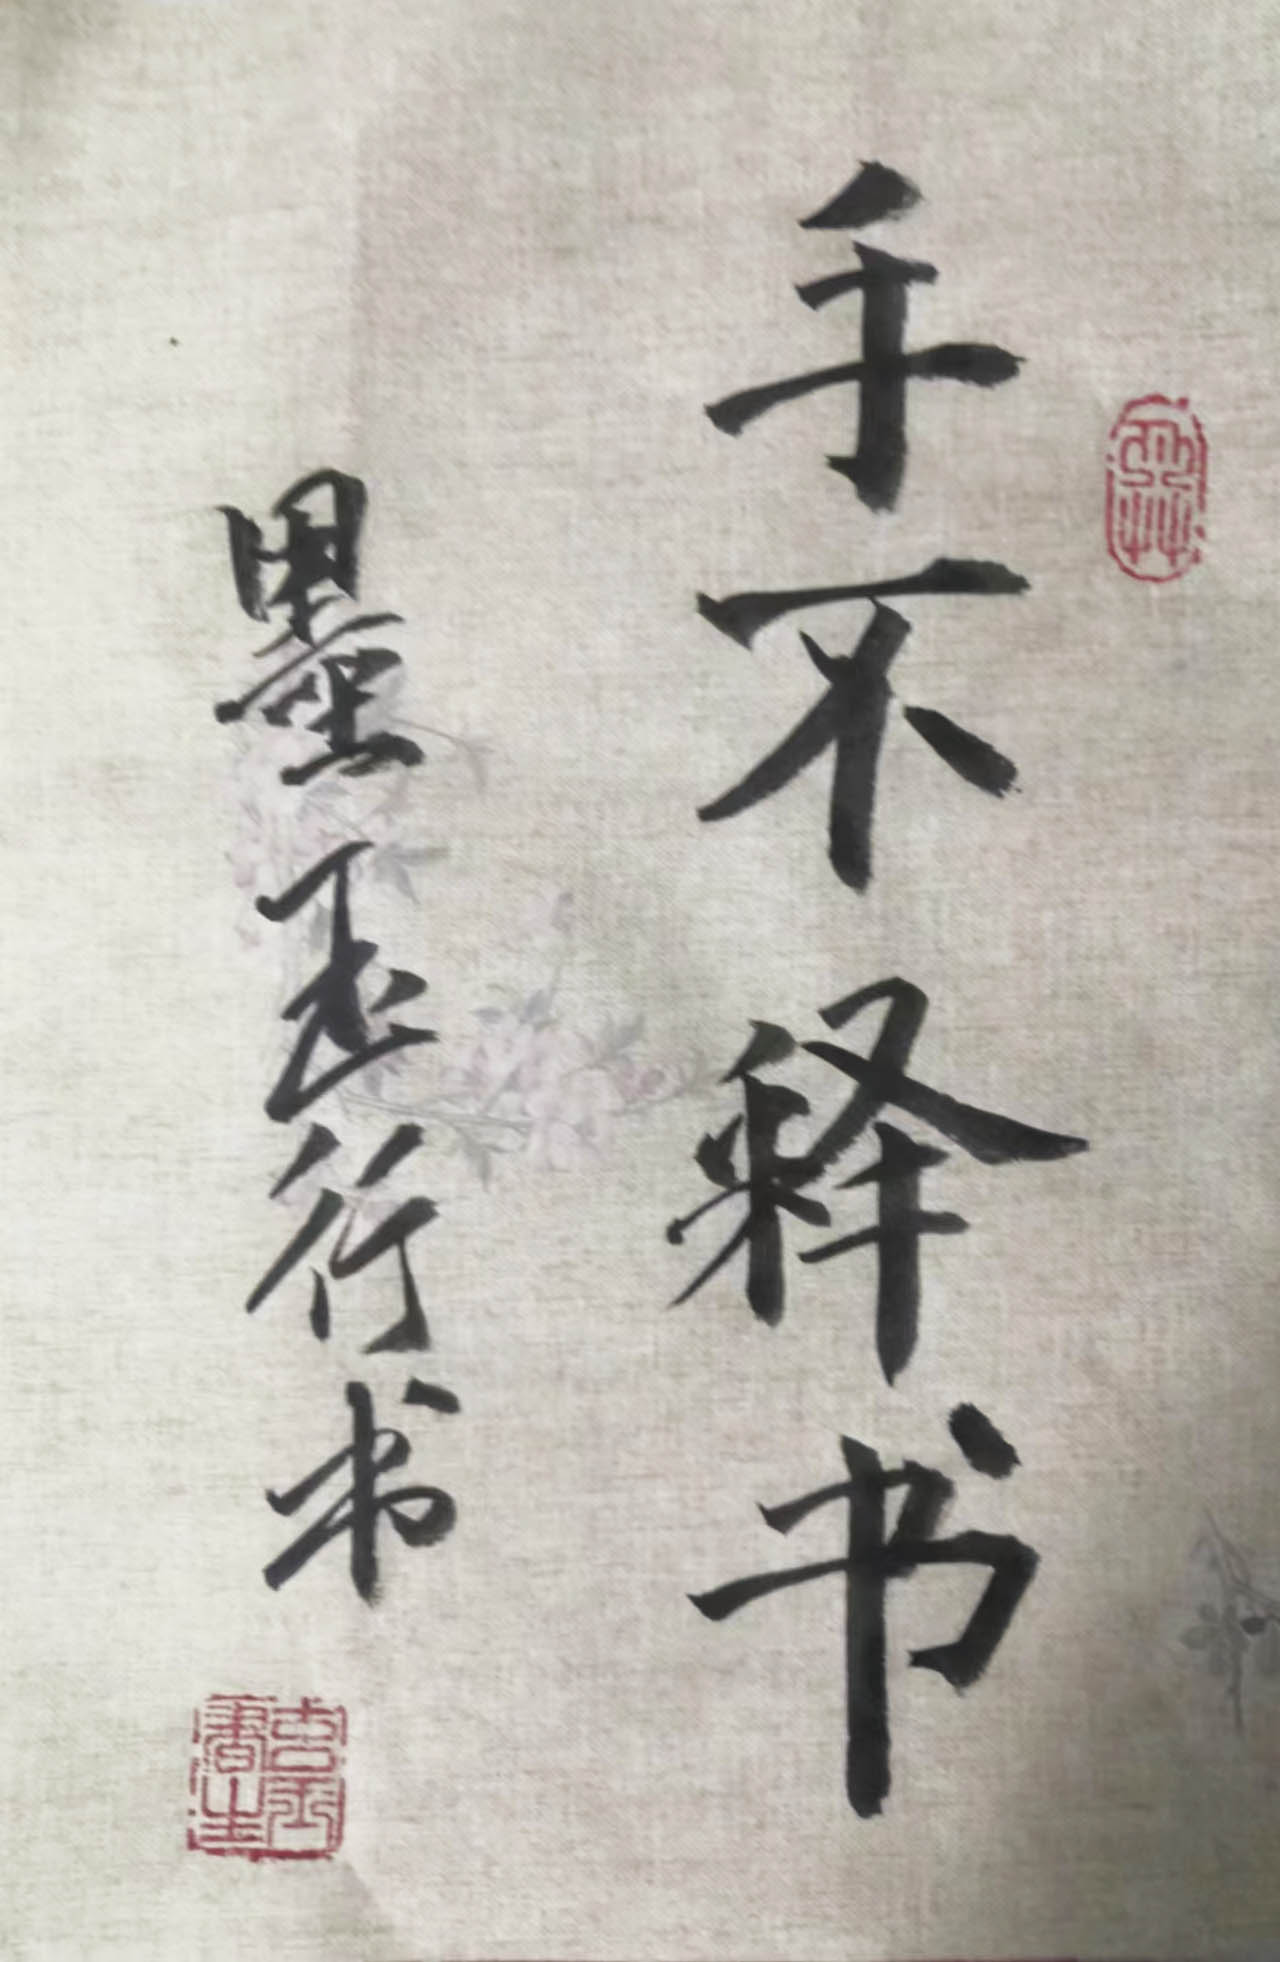 手不释书
墨玉行书